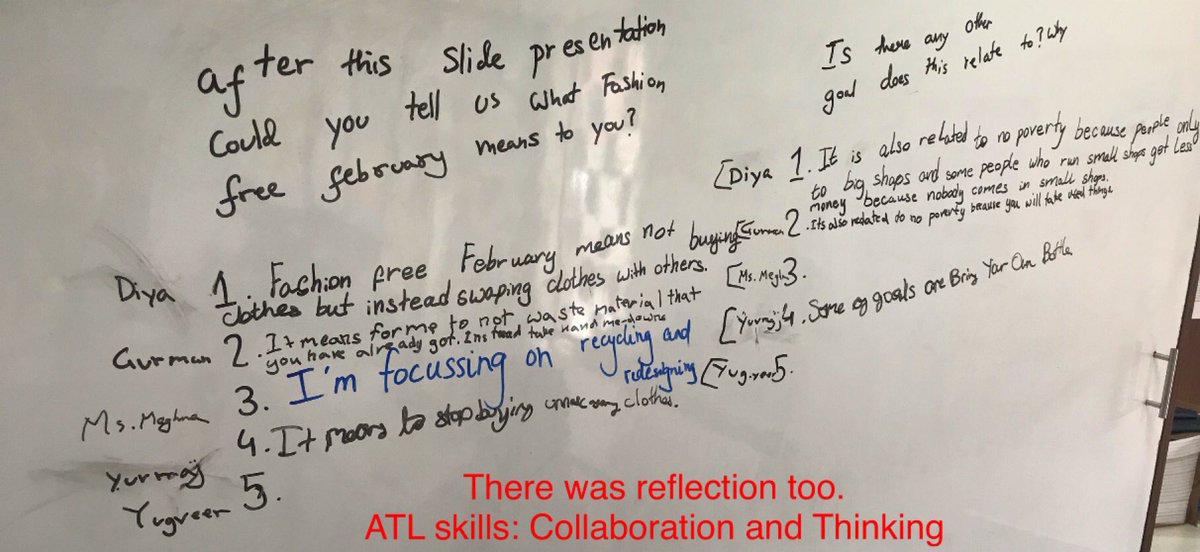 after this Slide presentation
Could you tell us what Fashion
free february means to you?
Diya 1. Fashion free February means not buying
clothes but instead swaping clothes with others.
Gurman 2. It means for me to not waste material that
you have already got. Instead take hand me-downs
Ms. Meghna 3. I'm focussing on recycling and
redesigning
Yuvraj 4. It means to stop buying unnecessary clothes.
Yugveer 5.
Is there any other
goal does this relate to? Why
[Diya 1. It is also related to no poverty because people only
to big shops and some people who run small shops get less
money because nobody comes in small shops.
[Gurman 2. Its also related do no poverty because you will take used things.
[Ms. Megha 3.
[Yuvraj 4. Some og goals are Bring Your Own Bottle
[Yugveer 5.
There was reflection too.
ATL skills: Collaboration and Thinking